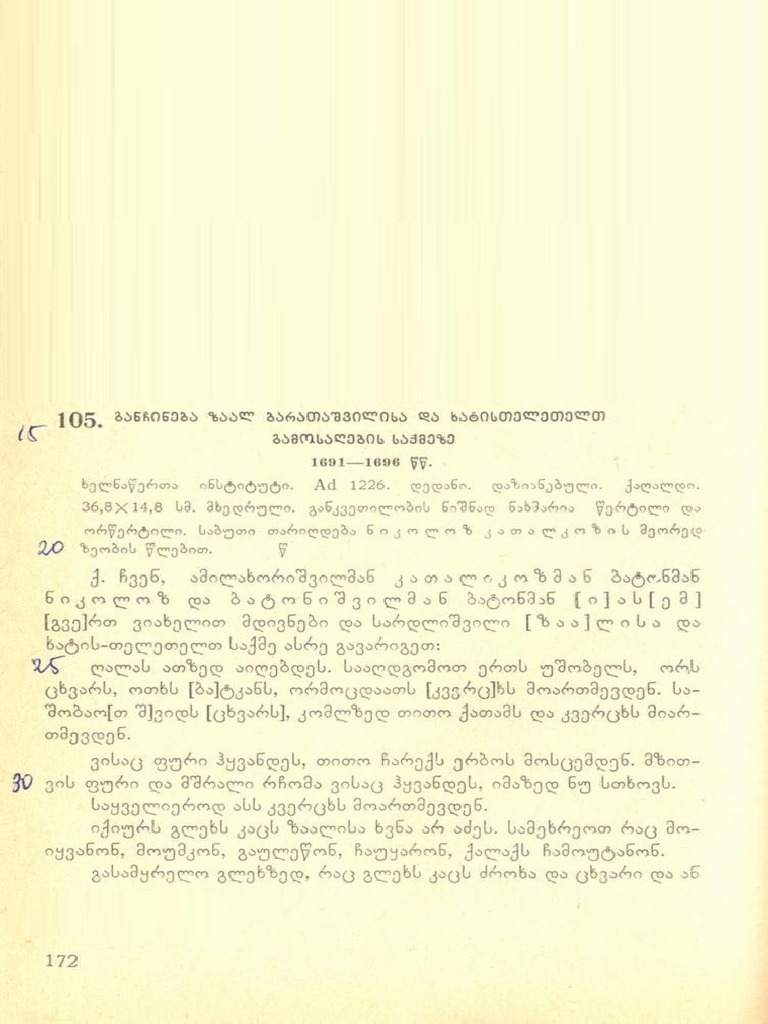 15 105. განჩინება ზაალ ბარათაშვილისა და ხატისთელეთელთ
გამოსაღების საქმეზე
1691—1696 წწ.
ხელნაწერთა ინსტიტუტი. Ad 1226. დედანი. დაზიანებული. ქაღალდი.
36,8×14,8 სმ. მხედრული. განკვეთილობის ნიშნად ნახმარია წერტილი და
ორწერტილი. საბუთი თარიღდება ნიკოლოზ კათალკოზის მეორედ
20 ზეობის წლებით. წ
ქ. ჩვენ, ამილახორიშვილმან კათალიკოზმან ბატონმან
ნიკოლოზ და ბატონიშვილმან ბატონმან [ი]ას[ემ]
[გვე]რთ ვიახელით მდივნები და სარდლიშვილი [ზაა]ლისა და
ხატის-თელეთელთ საქმე ასრე გავარიგეთ:
25 ღალას ათზედ აიღებდეს. სააღდგომოთ ერთს უშობელს, ორს
ცხვარს, ოთხს [ბა]ტკანს, ორმოცდაათს [კვერც]ხს მოართმევდენ. სა-
შობაო[თ შ]ვიდს [ცხვარს], კომლზედ თითო ქათამს და კვერცხს მიარ-
თმევდენ.
ვისაც ფური ჰყვანდეს, თითო ჩარექს ერბოს მოსცემდენ. მზით-
30 ვის ფური და მშრალი რჩომა ვისაც ჰყვანდეს, იმაზედ ნუ სთხოვს.
საყველიეროდ ასს კვერცხს მოართმევდენ.
იქიურს გლეხს კაცს ზაალისა ხვნა არ აძეს. სამეხრეოთ რაც მო-
იყვანონ, მოუმკონ, გაულეწონ, ჩაუყარონ, ქალაქს ჩამოუტანონ.
გასამყრელო გლეხზედ, რაც გლეხს კაცს ძროხა და ცხვარი და ან
172